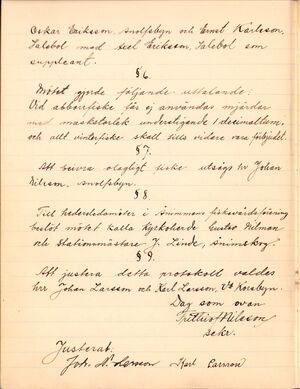 Oskar Eriksson, Snolfsbyn och Ernst Karlsson,
Salebol med Axel Eriksson, Salebol som
suppleant.
§ 6.
Mötet gjorde följande uttalande:
Vid abborrfiske får ej användas mjärdar
med maskstorlek understigande 1 decimaltum,
och allt vinterfiske skall tills vidare vara förbjudet.
§ 7.
Att beivra olagligt fiske utsågs hr Johan
Nilsson, Snolfsbyn.
§ 8.
Till hedersledamöter i Animmens fiskevårdsförening
beslöt mötet kalla Kyrkoherde Gustav Nilman
och Stationsmästare J. Linde, Animskog.
§ 9.
Att justera detta protokoll valdes
hrr Johan Larsson och Karl Larsson, V. Korsbyn.
Dag som ovan
Frithiof Nilsson
sekr.
Justerat:
Joh. Karl Larsson